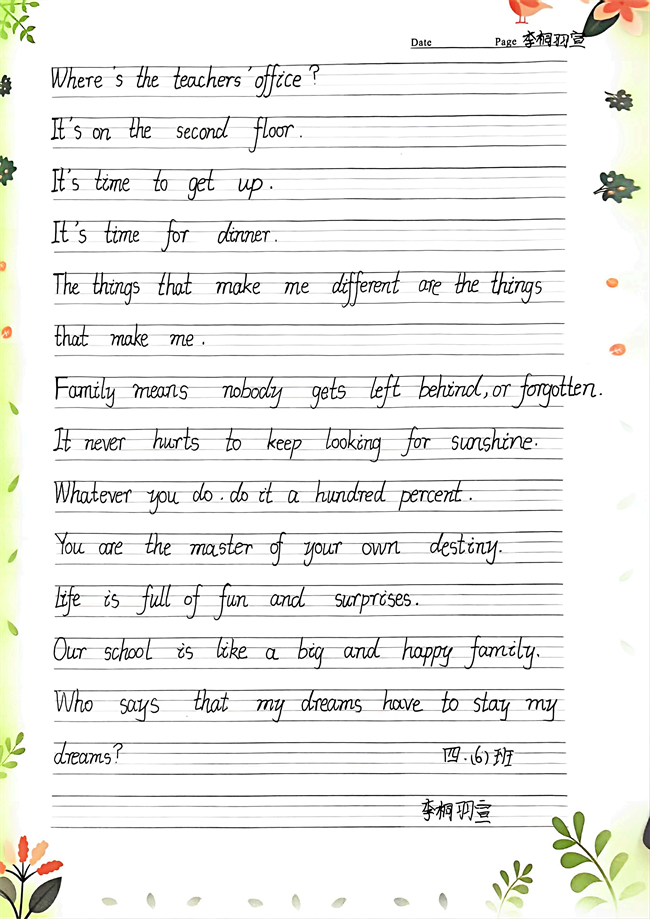 Date Page 李桐羽宣
Where's the teachers' office?
It's on the second floor.
It's time to get up.
It's time for dinner.
The things that make me different are the things
that make me.
Family means nobody gets left behind, or forgotten.
It never hurts to keep looking for sunshine.
Whatever you do. do it a hundred percent.
You are the master of your own destiny.
Life is full of fun and surprises.
Our school is like a big and happy family.
Who says that my dreams have to stay my
dreams?
四.(6)班
李桐羽宣